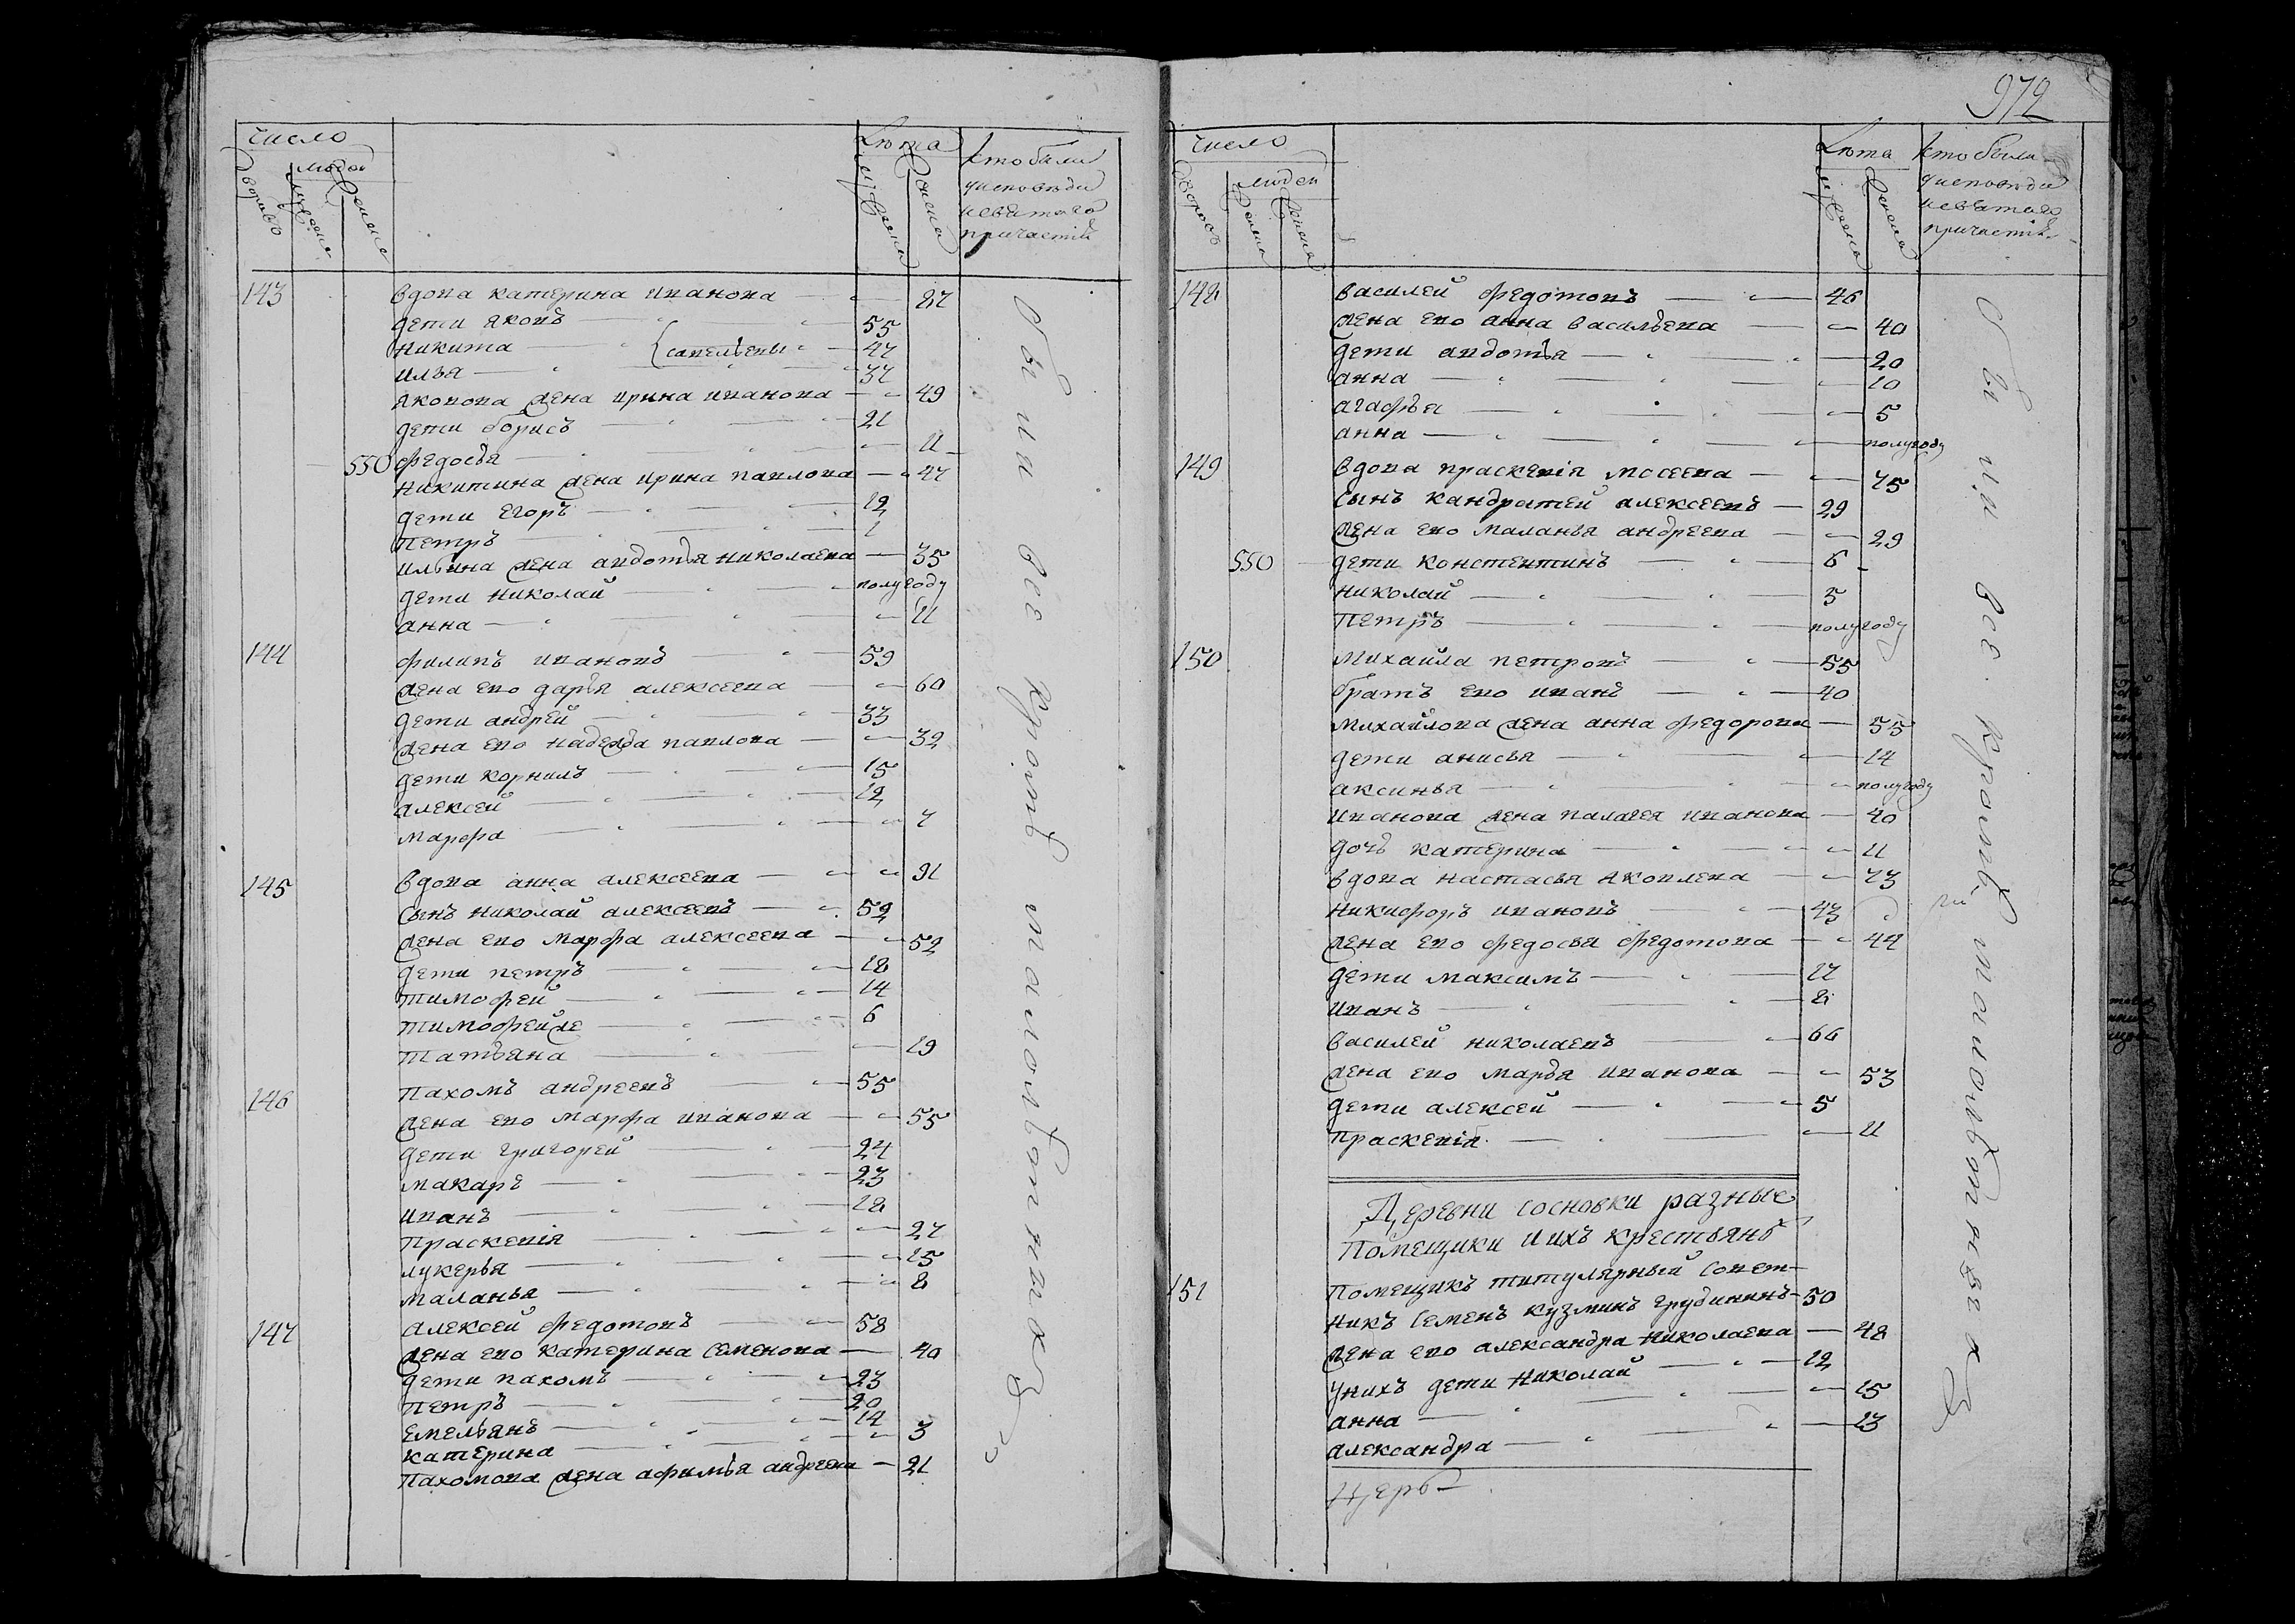 число
людей
дворовъ
мужеска
женска
лѣта
мужеска
женска
кто были
у исповѣди
и святаго
причастія
143 вдова катерина иванова 87
дети яковъ 55
никита савельевы 47
илья 37
яковова жена ирина иванова 49
дети борисъ 21
550 федосья 11
никитина жена ирина павлова 47
дети егоръ 12
петръ 1
ильина жена авдотья николаева 35
дети николай полугоду
анна 11
144 филипъ ивановъ 59
жена ево дарья алексеева 60
дети андрей 33
жена ево надежда павлова 32
дети корнилъ 15
алексей 12
марфа 7
145 вдова анна алексеева 91
сынъ николай алексеевъ 52
жена ево марфа алексеева 52
дети петръ 18
тимофей 14
тимофей же 6
татьяна 19
146 пахомъ андреевъ 55
жена ево марфа иванова 55
дети григорей 24
макаръ 23
иванъ 18
праскевія 27
лукерья 15
маланья 8
147 алексей федотовъ 58
жена ево катерина семенова 40
дети пахомъ 23
петръ 20
емельянъ 14
катерина 3
пахомова жена афимья андреева 21
были все кромѣ
972
число
людей
дворовъ
женска
лѣта
мужеска
женска
кто были
у исповѣди
и святаго
причастія
148 василей федотовъ 46
жена ево анна васильева 40
дети авдотья 20
анна 10
агафья 5
анна полугоду
149 вдова праскевія мосеева 75
сынъ кандратей алексеевъ 29
жена ево маланья андреева 29
550 дети констентинъ 6
николай 3
петръ полугоду
150 михайла петровъ 55
братъ ево иванъ 40
михайлова жена анна федорова 55
дети анисья 14
аксинья полугоду
иванова жена палагея иванова 40
дочь катерина 11
вдова настасья яковлева 73
никифоръ ивановъ 43
жена ево федосья федотова 44
дети максимъ 17
иванъ 8
василей николаевъ 66
жена ево марья иванова 53
дети алексей 5
праскевія 11
Деревни сосновки разные
Помещики и ихъ крестьянъ
151 помещикъ титулярный совет-
никъ семенъ кузминъ грудининъ 50
жена ево александра николаева 48
у нихъ дети николай 12
анна 15
александра 13
были все кромѣ